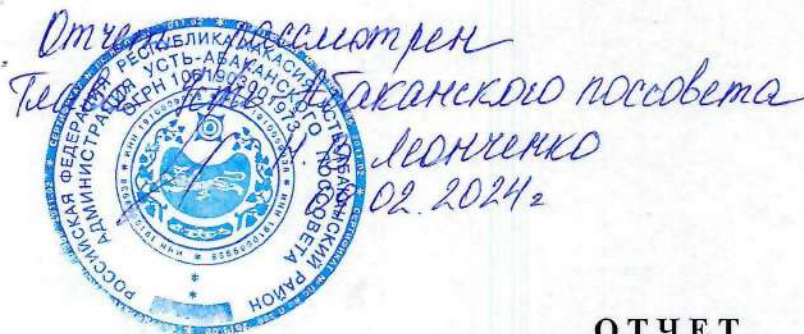 Отчет рассмотрен
Глава Усть-Абаканского поссовета
Н.В. Леонченко
02.2024г
РОССИЙСКАЯ ФЕДЕРАЦИЯ РЕСПУБЛИКА ХАКАСИЯ УСТЬ-АБАКАНСКИЙ РАЙОН
АДМИНИСТРАЦИЯ УСТЬ-АБАКАНСКОГО ПОССОВЕТА
ОТЧЕТ